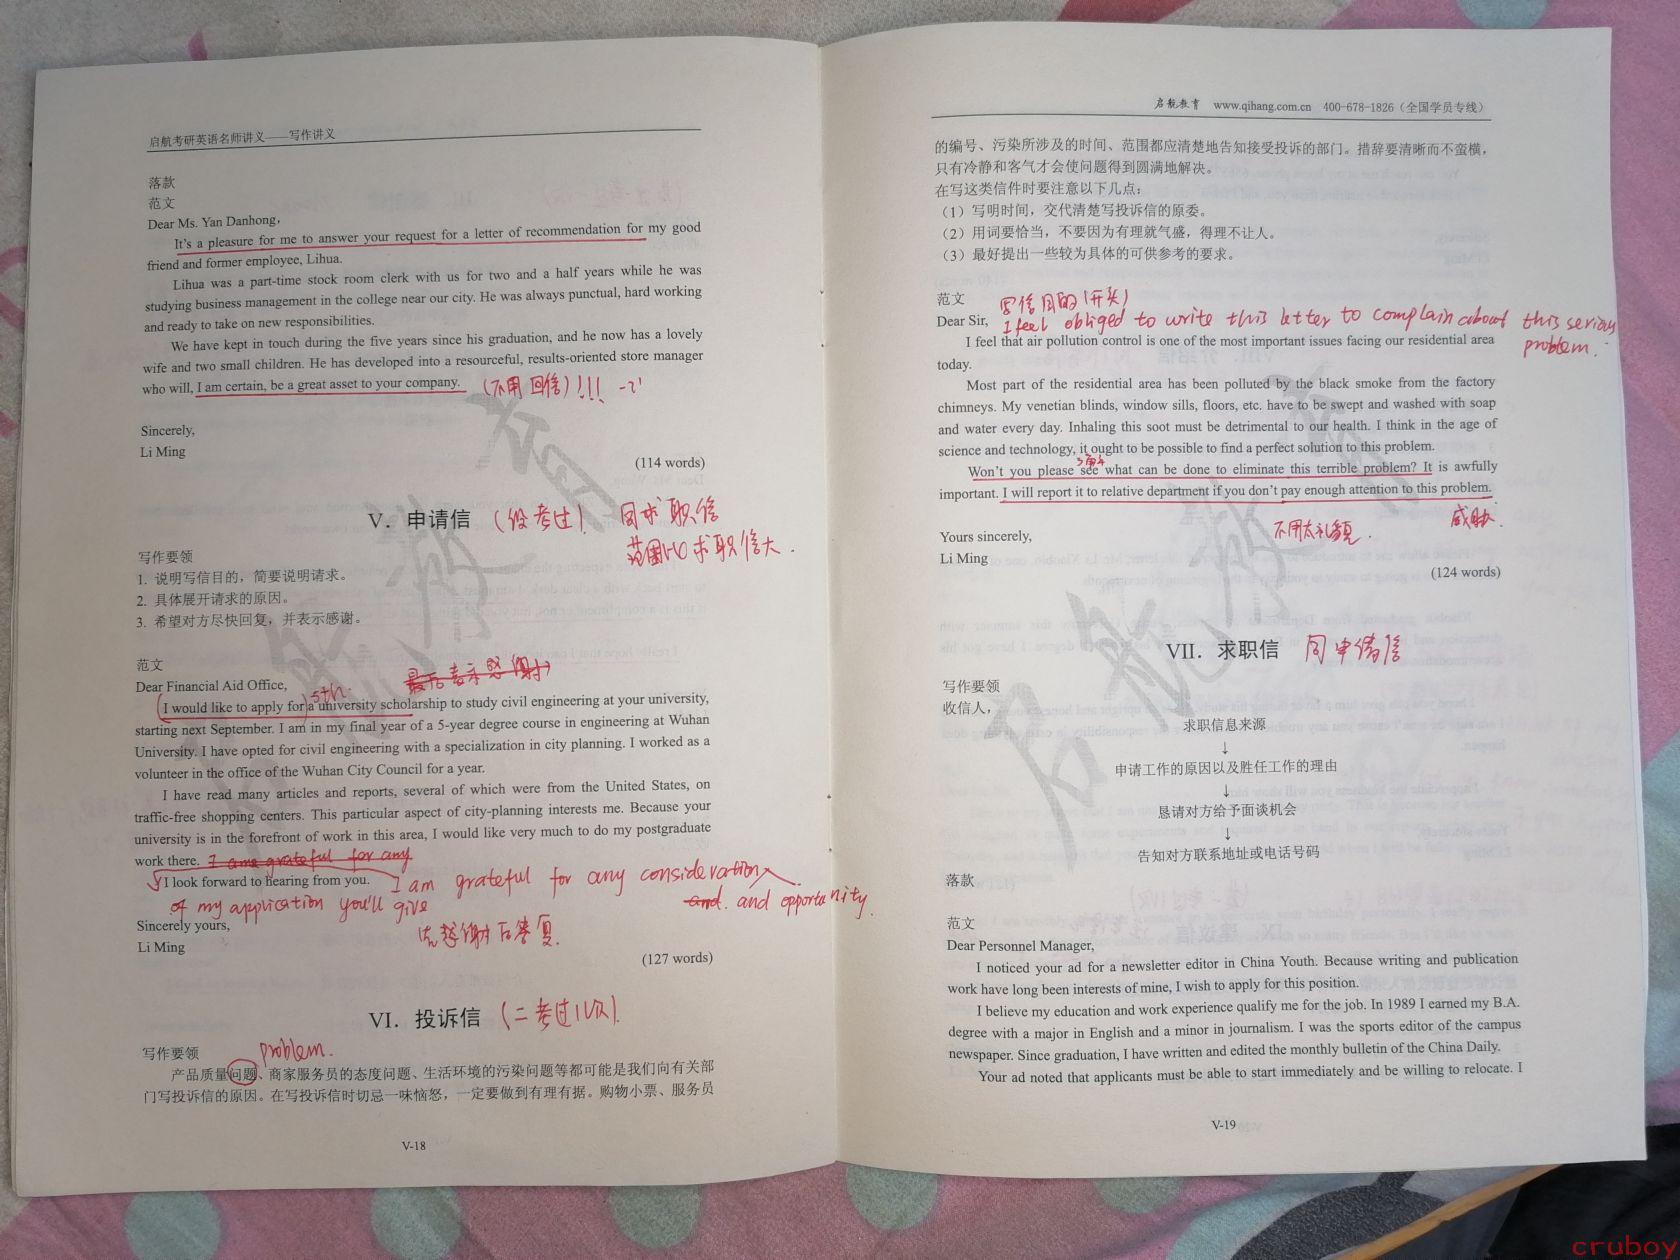 启航考研英语名师讲义——写作讲义
落款
范文
Dear Ms. Yan Danhong,
It's a pleasure for me to answer your request for a letter of recommendation for my good
friend and former employee, Lihua.
Lihua was a part-time stock room clerk with us for two and a half years while he was
studying business management in the college near our city. He was always punctual, hard working
and ready to take on new responsibilities.
We have kept in touch during the five years since his graduation, and he now has a lovely
wife and two small children. He has developed into a resourceful, results-oriented store manager
who will, I am certain, be a great asset to your company. (不用回信)!!!
Sincerely,
Li Ming
(114 words)
V. 申请信 (没考过) 同求职信
范围比求职信大.
写作要领
1. 说明写信目的，简要说明请求。
2. 具体展开请求的原因。
3. 希望对方尽快回复，并表示感谢。
范文
Dear Financial Aid Office, 最后表示感谢
sth.
I would like to apply for a university scholarship to study civil engineering at your university,
starting next September. I am in my final year of a 5-year degree course in engineering at Wuhan
University. I have opted for civil engineering with a specialization in city planning. I worked as a
volunteer in the office of the Wuhan City Council for a year.
I have read many articles and reports, several of which were from the United States, on
traffic-free shopping centers. This particular aspect of city-planning interests me. Because your
university is in the forefront of work in this area, I would like very much to do my postgraduate
work there. I am grateful for any
I look forward to hearing from you. I am grateful for any consideration
of my application you'll give and. and opportunity.
Sincerely yours,
先感谢后答复.
Li Ming
(127 words)
VI. 投诉信 (二考过1次).
写作要领 problem.
产品质量问题、商家服务员的态度问题、生活环境的污染问题等都可能是我们向有关部
门写投诉信的原因。在写投诉信时切忌一味恼怒，一定要做到有理有据。购物小票、服务员
V-18
启航教育 www.qihang.com.cn 400-678-1826（全国学员专线）
的编号、污染所涉及的时间、范围都应清楚地告知接受投诉的部门。措辞要清晰而不蛮横，
只有冷静和客气才会使问题得到圆满地解决。
在写这类信件时要注意以下几点：
（1）写明时间，交代清楚写投诉信的原委。
（2）用词要恰当，不要因为有理就气盛，得理不让人。
（3）最好提出一些较为具体的可供参考的要求。
范文 写信目的(开头)
Dear Sir, I feel obliged to write this letter to complain about this serious
problem.
I feel that air pollution control is one of the most important issues facing our residential area
today.
Most part of the residential area has been polluted by the black smoke from the factory
chimneys. My venetian blinds, window sills, floors, etc. have to be swept and washed with soap
and water every day. Inhaling this soot must be detrimental to our health. I think in the age of
science and technology, it ought to be possible to find a perfect solution to this problem.
Won't you please see what can be done to eliminate this terrible problem? It is awfully
important. I will report it to relative department if you don't pay enough attention to this problem.
不用太礼貌. 威胁.
Yours sincerely,
Li Ming
(124 words)
VII. 求职信 同申请信
写作要领
收信人，
求职信息来源
↓
申请工作的原因以及胜任工作的理由
↓
恳请对方给予面谈机会
↓
告知对方联系地址或电话号码
落款
范文
Dear Personnel Manager,
I noticed your ad for a newsletter editor in China Youth. Because writing and publication
work have long been interests of mine, I wish to apply for this position.
I believe my education and work experience qualify me for the job. In 1989 I earned my B.A.
degree with a major in English and a minor in journalism. I was the sports editor of the campus
newspaper. Since graduation, I have written and edited the monthly bulletin of the China Daily.
Your ad noted that applicants must be able to start immediately and be willing to relocate. I
V-19
启航教育
启航教育
cruboy